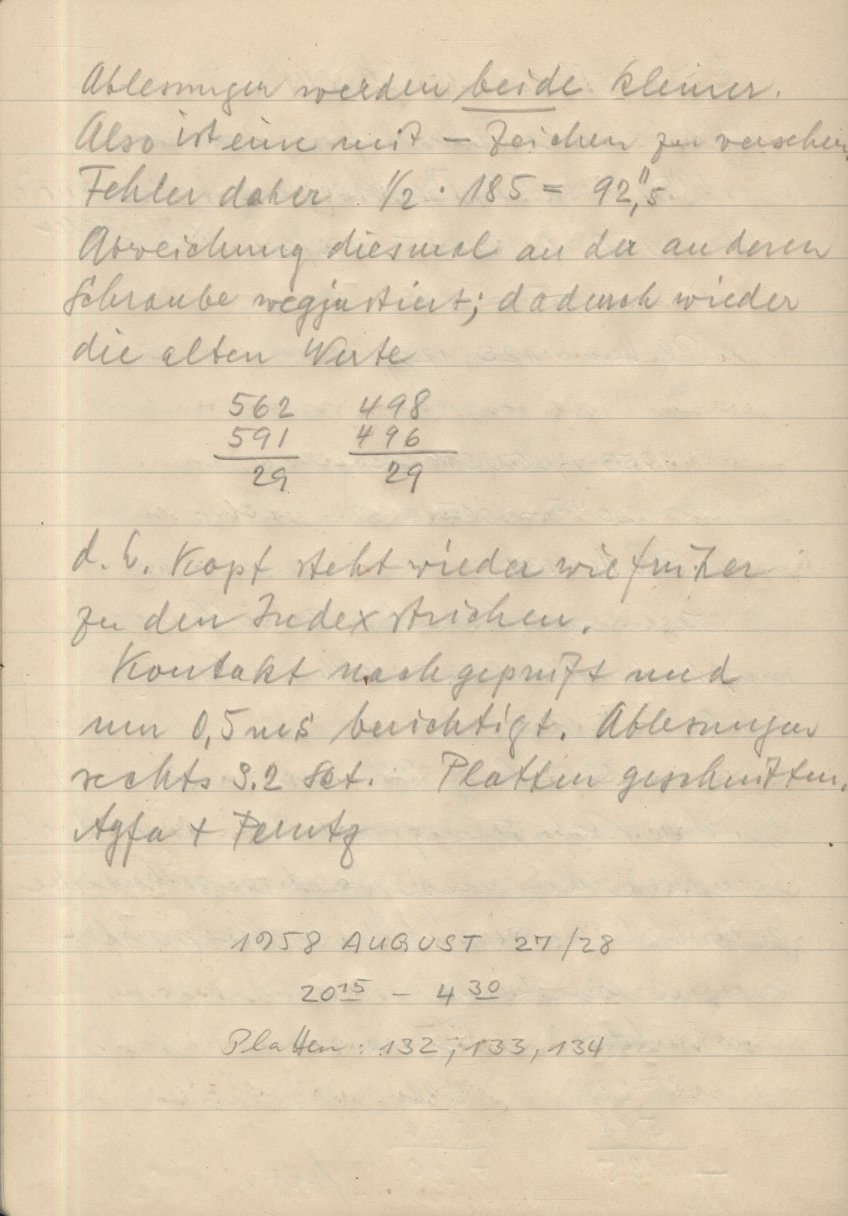 Ablesungen werden beide kleiner.
Also ist eine mit – Zeichen zu versehen.
Fehler daher 1/2 · 185 = 92",5
Abweichung diesmal an der anderen
Schraube wegjustiert; dadurch wieder
die alten Werte
562 498
591 496
29 29
d. h. Kopf steht wieder wie früher
zu den Indexstrichen.
Kontakt nachgeprüft und
um 0,5 ms berichtigt. Ablesungen
rechts 9.2 Skt. Platten geschnitten.
Agfa + Perutz
1958 AUGUST 27/28
20 15 – 4 30
Platten: 132, 133, 134